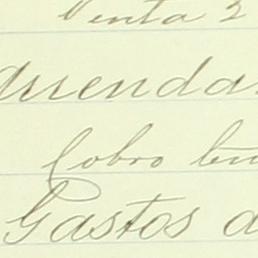 Venta 2
Arrenda
Cobro
Gastos d